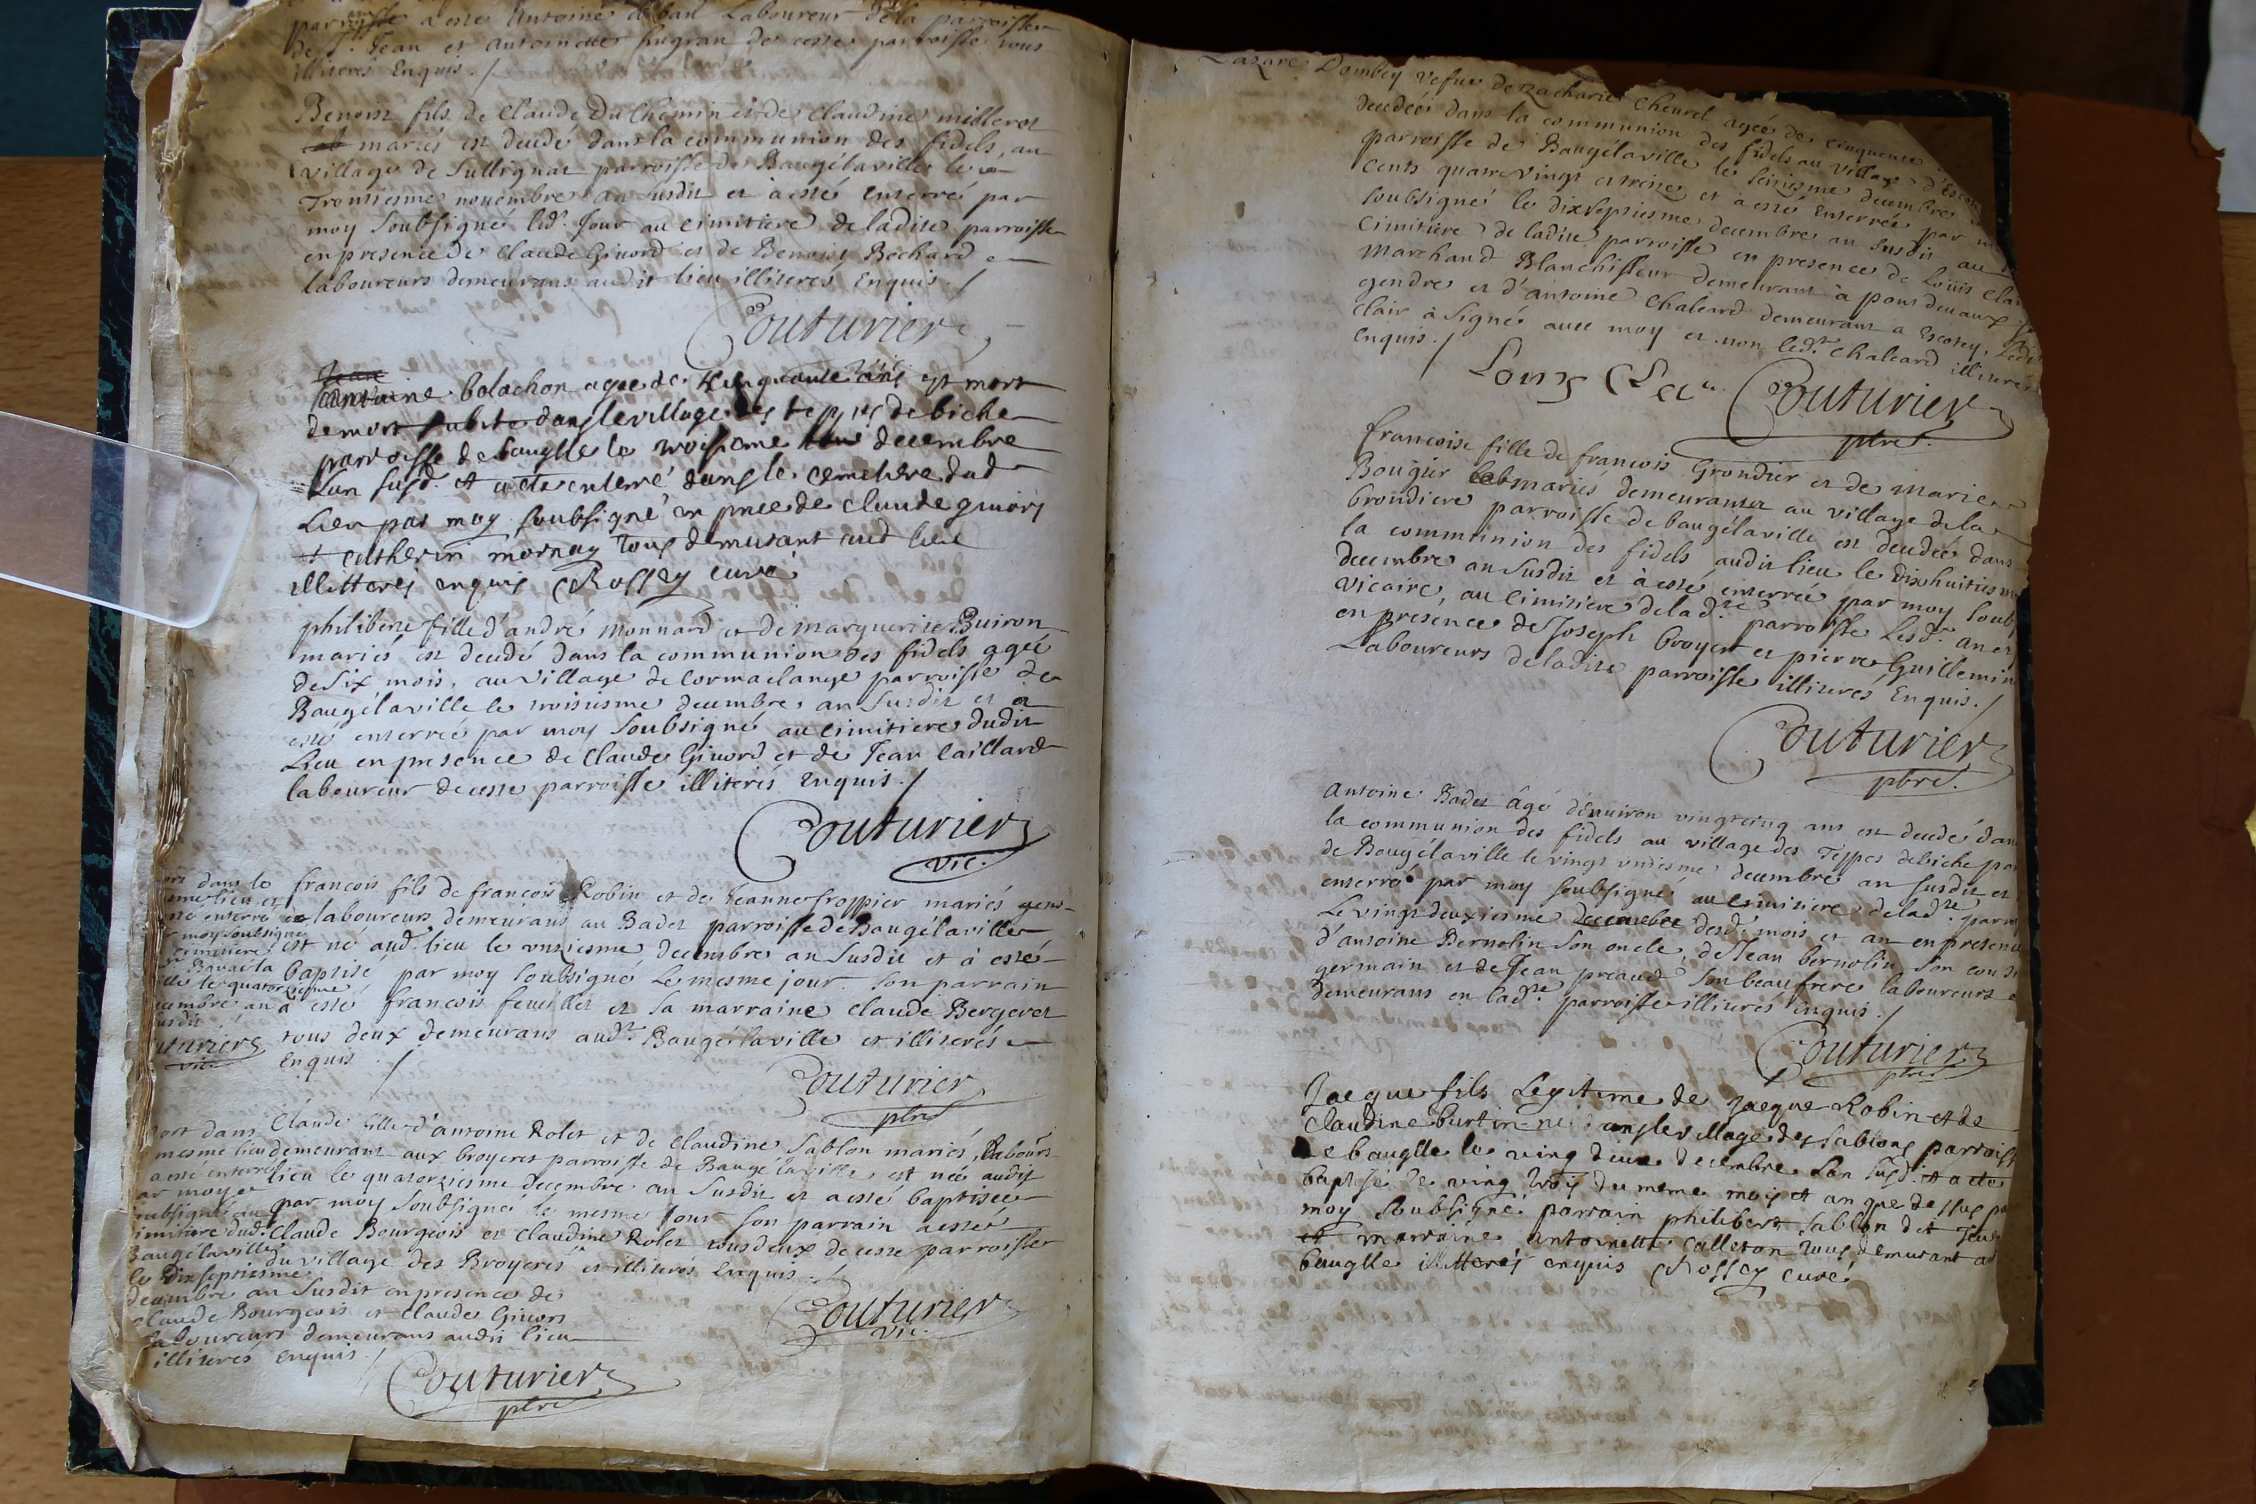 parroisse a esté Antoine debail Laboureur de la parroisse
de St. Jean et Antoinette hugran de cette parroisse tous
illiterés Enquis ./
Benoist fils de Claude Du Chemin et de Claudine milleret
mariés est decedé dans la communion des fidels, au
village de Sullignat parroisse de Baugélaville le
Trentiesme novembre an susdit et à esté enterré par
moy soubsigné led. Jour au cimitiere de ladite parroisse
en presence de Claude Givord et de Benoist Bochard
laboureurs demeurans audit lieu illiterés Enquis ./
Couturier
Jean
antoine bolachon agee de cinquante ans est mort
de mort subite dans le village des teppes de biche
parroisse de bauglle le troisieme decembre
Lan susd. et a ete enterré dans le cemetiere dud
Lieu par moy soubsigné en pnce de claude givors
et catherin mornay tous demurant aud lieu
illitteres enquis Rossey curé
philiberte fille d'andré monnard et de marguerite Buiron
mariés est decedé dans la communion des fidels agée
de six mois, au village de Cormaclange parroisse de
Baugélaville le troisiesme decembre an susdit et a
esté enterrée par moy soubsigné au cimitiere dudit
Lieu en presence de Claude Givord et de Jean Caillard
laboureur de cette parroisse illiterés enquis ./
Couturier
vic.
francois fils de francois Robin et de Jeanne froppier mariés
laboureurs demeurans au Badet parroisse de Baugélaville
est né aud. lieu le unziesme decembre an susdit et à esté
baptisé par moy soubsigné le mesme jour. son parrain
à esté francois feuillet et sa marraine claude Bergeret
tous deux demeurans audt. Baugélaville et illiterés
Enquis ./
Couturier
pbre
dans le
mesme lieu et
enterré
moy soubsigné
cimitiere
Baugela
le quatorziesme
decembre an
susdit
Couturier
vic
Claude fille d'antoine Rolet et de Claudine Sablon mariés, Labours
demeurant aux broyeres parroisse de Baugélaville, est née audit
lieu le quatorziesme decembre an susdit et a esté baptisée
par moy soubsigné le mesme jour son parrain a esté
Claude Bourgeois et Claudine Rolet tous deux de cette parroisse
du village des Broyeres et illiterés Enquis ./
Couturier
vic.
mort dans
mesme lieu
a esté enterré
par moy
soubsigné au
cimitiere dud.
Baugélaville
le dixseptiesme
decembre an susdit en presence de
claude Bourgeois et Claude Givors
Laboureurs demeurans audit lieu
illiterés enquis ./
Couturier
pbre
Lazare Dombey vefue de Zacharie Cheurel agée de cinquente
decedée dans la communion des fidels au village d'Escor
parroisse de Baugélaville le seiziesme decembre
cents quatre vingt et treize et a esté enterrée par
soubsigné le dixseptiesme decembre an susdit au
Cimitiere de ladite parroisse en presence de Louis Clai
Marchand Blanchisseur demeurant à pont devaux
gendre et d'antoine Chaleard demeurant a Escorey, Led
clair à signé avec moy et non ledt. Chaleard illiteré
Enquis ./
Louys Cler
Couturier
pbre.
francoise fille de francois Grondier et de marie
Bougier mariés demeurans au village de la
broudiere parroisse de baugélaville est decedée dans
la communion des fidels audit lieu le dixhuitiesme
decembre an susdit et à esté enterrée par moy soub
vicaire, au cimitiere de ladte. parroisse lesd. an et
en presence de Joseph broyer et pierre Guillemin
Laboureurs de ladite parroisse illiterés Enquis ./
Couturier
pbre.
Antoine Badet âgé d'environ vingt cinq ans est decedé dan
la communion des fidels au village des Teppes de biche par
de Baugélaville le vingt uniesme decembre an susdit et
enterré par moy soubsigné au cimitiere de ladte. parroi
Le vingt deuxiesme decembre desd. mois et an en presence
d'antoine Bernolin son oncle, de Jean bernolin son cousi
germain et de Jean preaud son beau frere laboureurs
demeurans en ladte. parroisse illiterés enquis ./
Couturier
pbre
Jaeque fils Legitime de Jaeque Robin et de
Claudine burtin né dans le village des Sablons parroiss
de bauglle le ving deux decembre Lan susd. et a ete
baptisé le ving trois du meme mois et an que dessus pa
moy soubsigné parrain philibert Sablon dit
et marraine antoinette calleton tous demurant a
bauglle illitterés enquis Rossey curé